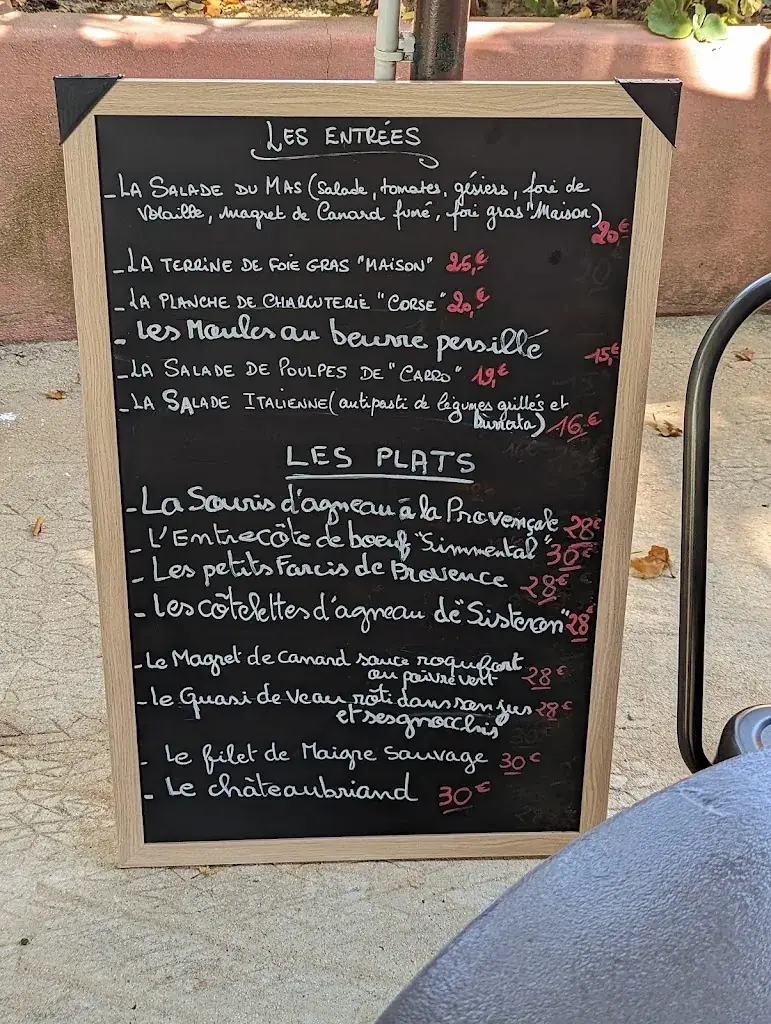 LES ENTRÉES
- LA SALADE DU MAS (Salade, tomates, gésiers, foie de
Volaille, magret de Canard fumé, foie gras "Maison)
20€
- LA TERRINE DE FOIE GRAS "MAISON" 25,-€
- LA PLANCHE DE CHARCUTERIE "CORSE" 20,-€
- Les Moules au beurre persillé
15,€
- LA SALADE DE POULPES DE "CARRO" 19,€
- LA SALADE ITALIENNE (antipasti de légumes grillés et
Burrata) 16€
LES PLATS
- La Souris d'agneau à la Provençale 28€
- L'Entrecôte de boeuf "Simmental" 30€
- Les petits Farcis de Provence 28€
- Les côtelettes d'agneau de "Sisteron" 28€
- Le Magret de Canard sauce roquefort
ou poivre vert 28€
- Le Quasi de Veau rôti dans son jus 28€
et ses gnocchis
- Le filet de Maigre Sauvage 30€
- Le châteaubriand 30€